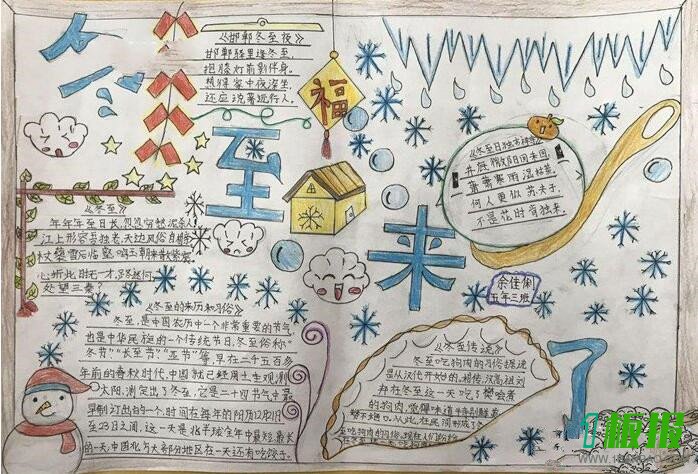 冬至来了
《邯郸冬至夜》
邯郸驿里逢冬至,
抱膝灯前影伴身。
想得家中夜深坐,
还应说着远行人。
福
《冬至》
年年至日长
江上形容吾独老,天边风俗自相亲
杖藜雪后临
心折此时无一寸,路迷何
处望三秦?
《冬至的来历和习俗》
冬至,是中国农历中一个非常重要的节气,
也是中华民族的一个传统节日,冬至俗称"
冬节""长至节""亚节"等,早在二千五百多
年前的春秋时代,中国就已经用土圭观测
太阳,测定出了冬至,它是二十四节气中最
早制订出的一个,时间在每年的阳历12月21
至23日之间,这一天是北半球全年中最短
的一天,中国北方大部分地区在一天还有吃饺子
井底微阳回未回,
萧萧寒雨湿枯荄。
何人更似苏夫子,
不是花时肯独来。
余佳俐
五年三班
《冬至传说》
冬至吃狗肉的习俗据说
是从汉代开始的,相传,汉高祖刘
邦在冬至这一天吃了樊哙煮
的狗肉,觉得味道特别鲜美
赞不绝口。从此在民间形成了
板报